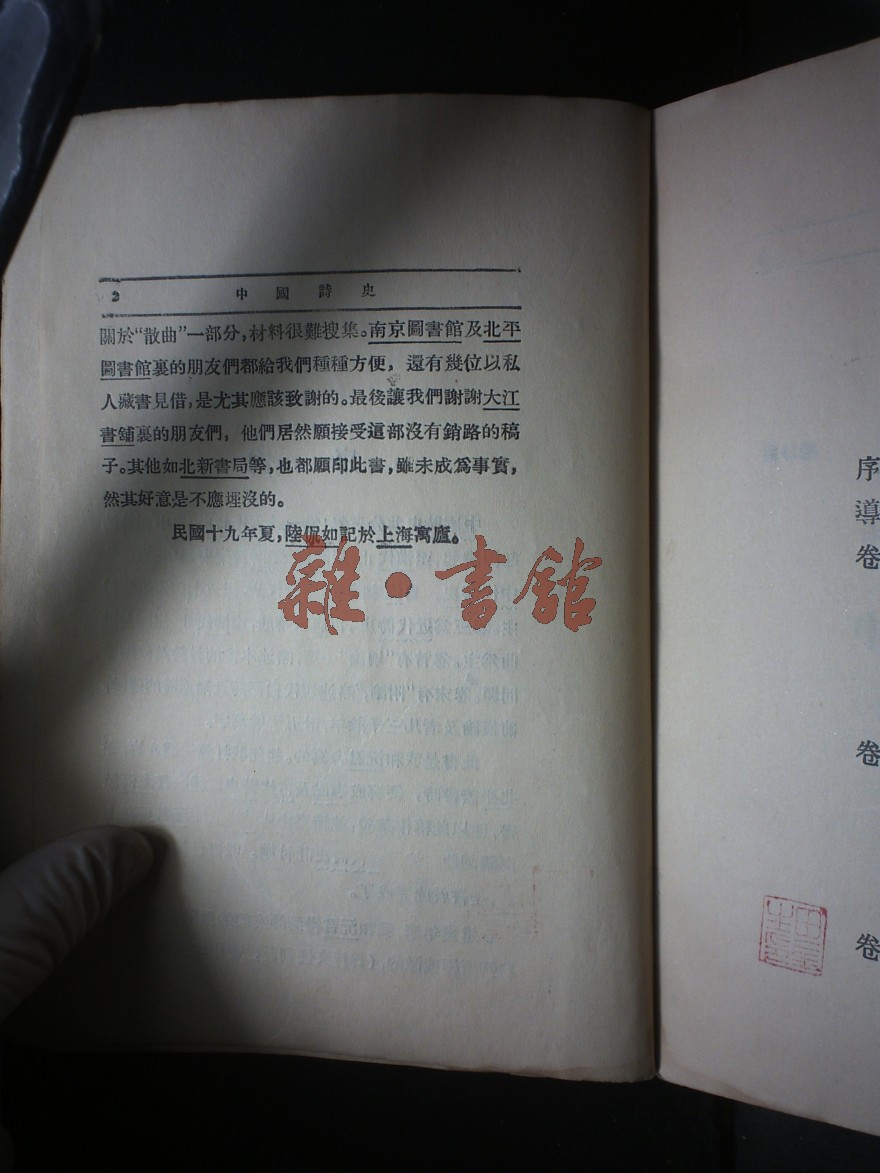 2 中國詩史
關於“散曲”一部分，材料很難搜集。南京圖書館及北平
圖書館裏的朋友們都給我們種種方便，還有幾位以私
人藏書見借，是尤其應該致謝的。最後讓我們謝謝大江
書舖裏的朋友們，他們居然願接受這部沒有銷路的稿
子。其他如北新書局等，也都願印此書，雖未成爲事實，
然其好意是不應埋沒的。
民國十九年夏，陸侃如記於上海寓廬。
雜·書館
序
導
卷
卷
卷